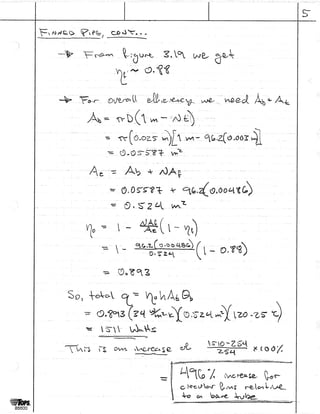 5
FINNED PIPE, CONT...
→ From figure 3.19 we get
ηf ~ 0.88
→ For overall efficiency we need Ab + At
Ab = πD(1 m - Nt)
= π(0.025 m)[1 m - 96.2(0.002)]
= 0.05587 m²
At = Ab + NAf
= 0.05587 + 96.2(0.00486)
= 0.524 m²
ηo = 1 - NAf/At (1 - ηf)
= 1 - 96.2(0.00486)/0.524 (1 - 0.88)
= 0.893
So, total q = ηo h At θb
= 0.893(34 W/m²·K)(0.524 m²)(120-25 °C)
= 1511 watts
This is an increase of 1510-254/254 × 100%
= 496% increase for
circular fins relative
to an bare tube
TOPS